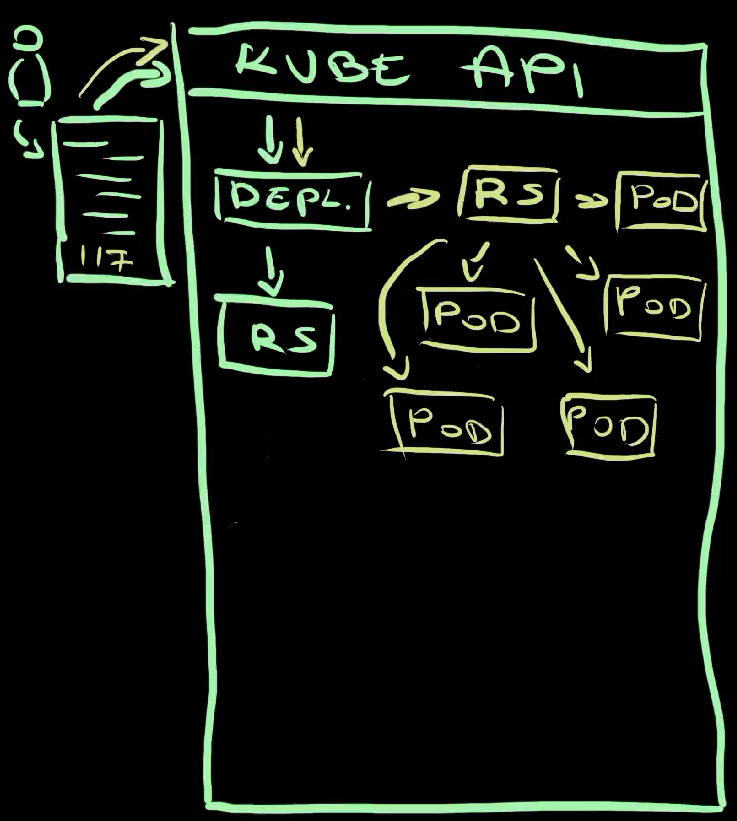 KUBE API
DEPL. RS POD
117
RS POD POD
POD POD